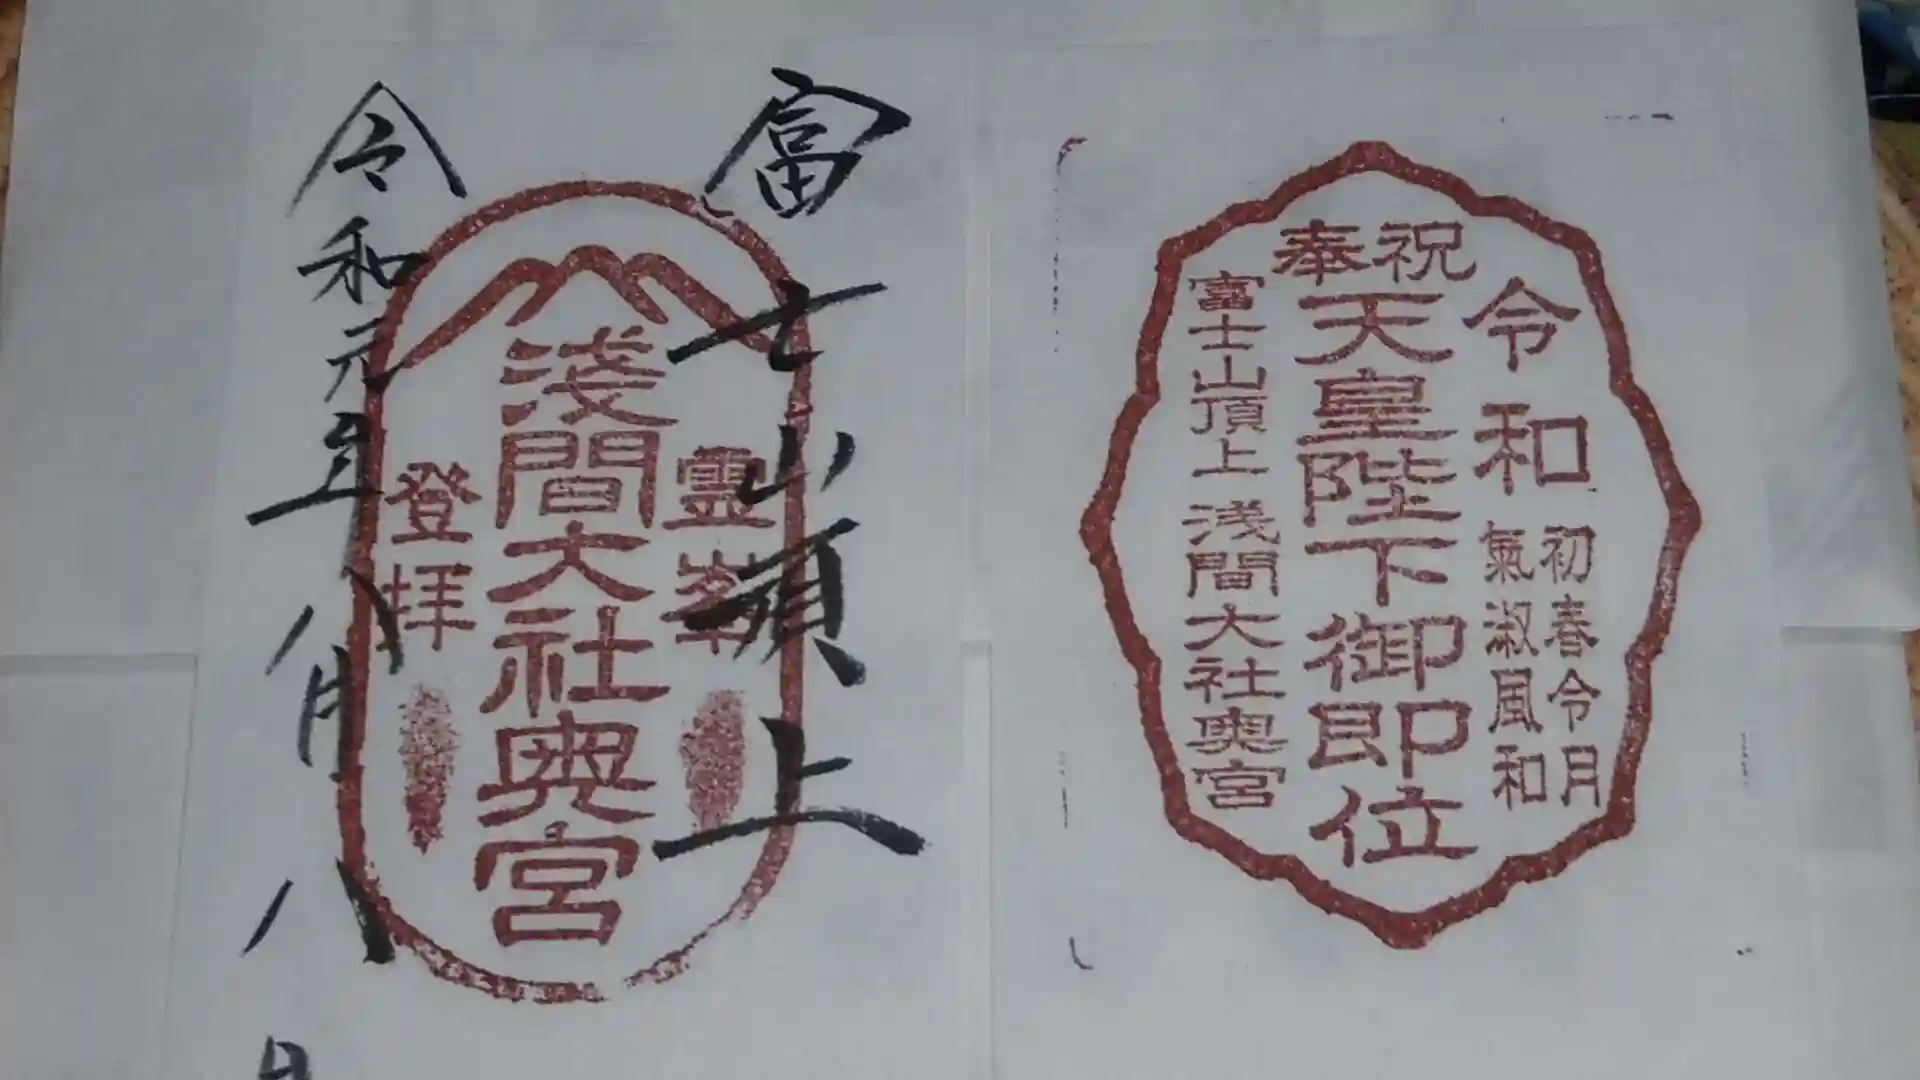 奉祝
令和
初春令月
氣淑風和
天皇陛下御即位
富士山頂上浅間大社奥宮
富士山頂上
霊峰
浅間大社奥宮
登拝
令和元年八月八日